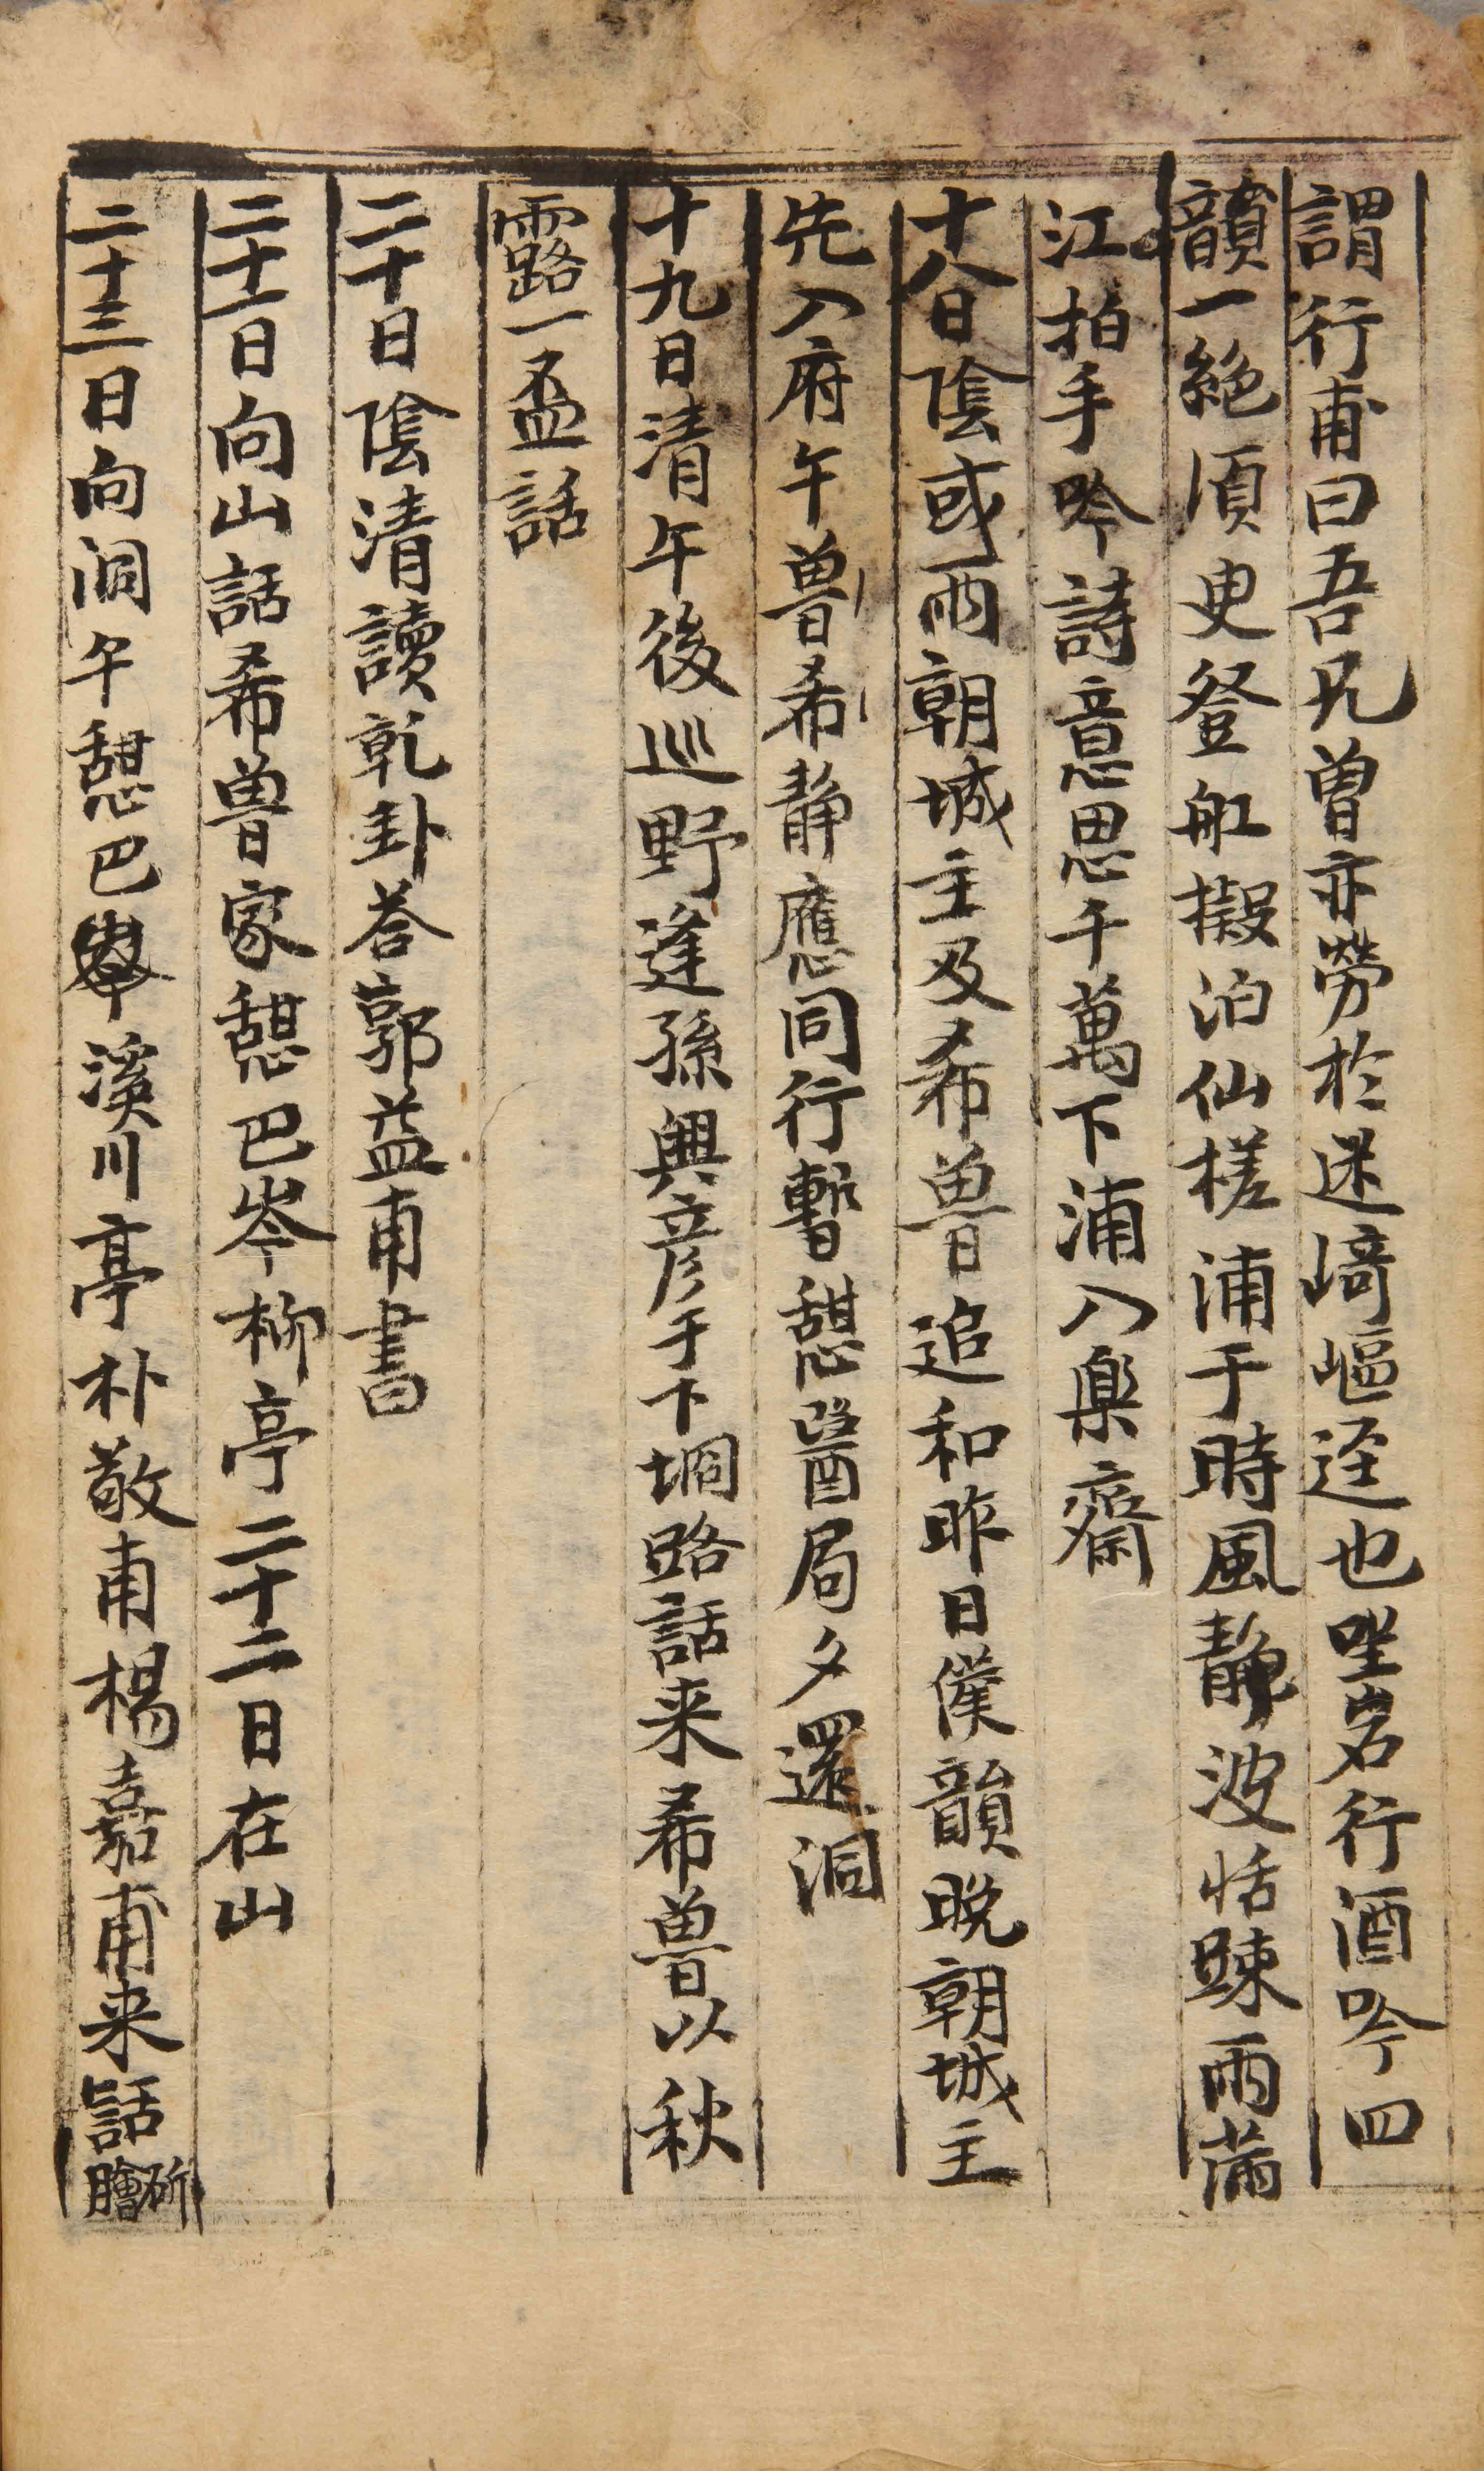 謂行甫曰吾兄曾亦勞於迷崎嶇逕也坐岩行酒吟四
韻一絶湏臾登舡擬泊仙槎浦于時風静波恬踈雨满
江拍手吟詩意思千萬下浦入樂齋
十八日陰或雨朝城主及希魯追和昨日僕韻晩朝城主
先入府午魯希静應同行暫憇醫局夕還洞
十九日清午後巡野逢孫興彦于下堌路話来希魯以秋
露一盃話
二十日陰清讀乾卦答郭益甫書
二十一日向山話希魯家憇巴岑柳亭二十二日在山
二十三日向洞午憇巴溪川亭朴敬甫楊嘉甫来話斫膾